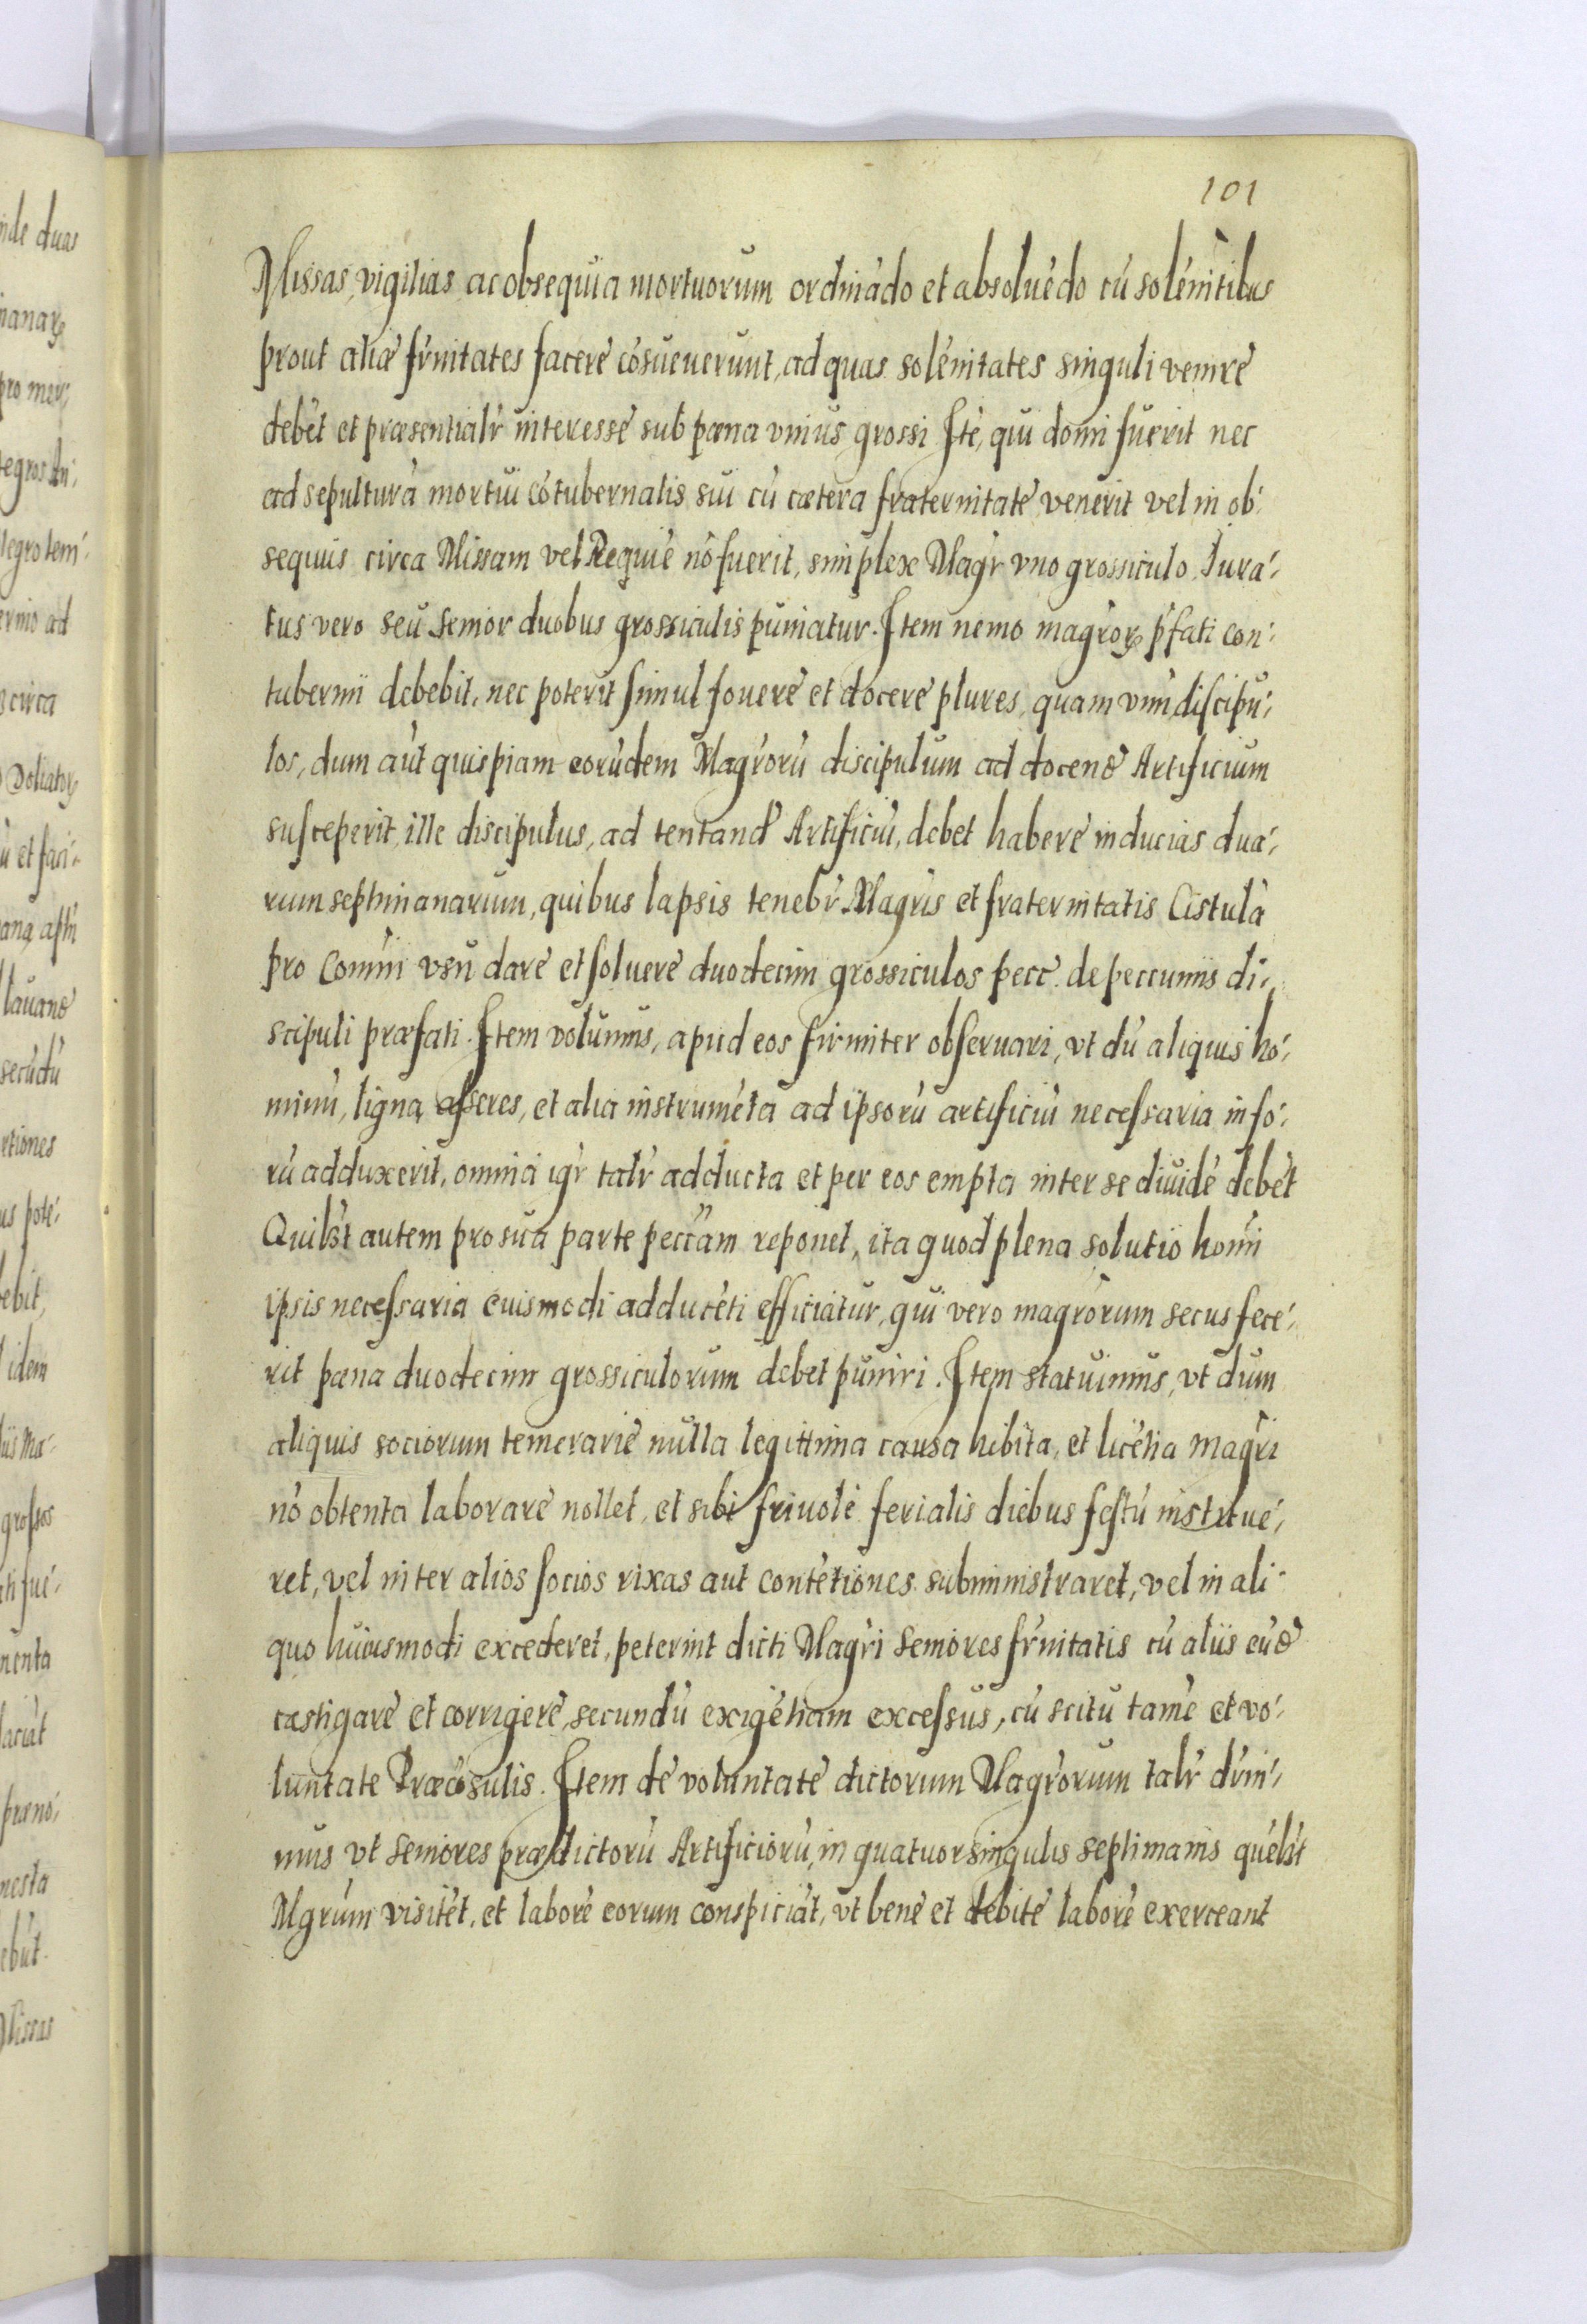 101
Missas, vigilias ac obsequia mortuorum ordinādo et absoluēdo cū solēnitibus
prout aliæ fr̄nitates facere cōsueuerunt, ad quas solēnitates singuli venire
debēt et præsentialr̄ interesse sub pæna vnius grossi Itē, qui domi fuerit nec
ad sepulturā mortui cōtubernalis sui cū cætera fraternitate venerit vel in ob-
sequiis circa Missam vel Requiē nō fuerit, simplex Magr̄ vno grossiculo. Jura-
tus vero seu Senior duobus grossiculis puniatur. Item nemo magr̄oꝝ p̄fati con-
tubernii debebit, nec poterit simul fouere et docere plures, quam vnū discipu-
los, dum aūt quispiam eorūdem Magr̄orū discipulum ad docend̄ Artificium
susceperit, ille discipulus, ad tentand̄ Artificiū, debet habere inducias dua-
rum septimanarum, quibus lapsis tenebr̄ Magr̄is et fraternitatis Cistulā
pro Comūi vsu dare et soluere duodecim grossiculos pecc̄. de peccuniis di-
scipuli præfati. Item volumus, apud eos firmiter obseruari, vt dū aliquis ho-
minū, ligna, asseres, et alia instrumēta ad ipsorū artificiū necessaria in fo-
rū adduxerit, omnia igr̄ talr̄ adducta et per eos empta inter se diuidē debēt
Quilb̄t autem pro sua parte pecc̄am reponet, ita quod plena solutio homi
ipsis necessaria euismodi adducēti efficiatur, qui vero magr̄orum secus fece-
rit pæna duodecim grossiculorum debet puniri. Item statuimus, vt dum
aliquis sociorum temerarie nulla legittima causa hibita, et licētia magr̄i
nō obtenta laborare nollet, et sibi friuole ferialis diebus festū institue-
ret, vel inter alios socios rixas aut contētiones subministraret, vel in ali-
quo huiusmodi excederet, peterint dicti Magr̄i Seniores fr̄nitatis cū aliis eūd̄
castigare et corrigere, secundū exigētiam excessus, cū scitu tamē et vo-
luntate Præcōsulis. Item de voluntate dictorum Magr̄orum talr̄ dr̄in-
mus vt Seniores prædictorū Artificiorū, in quatuor singulis septimanis quēlb̄t
Mgrum visitēt, et laborē eorum conspiciāt, vt bene et debite laborē exerceant